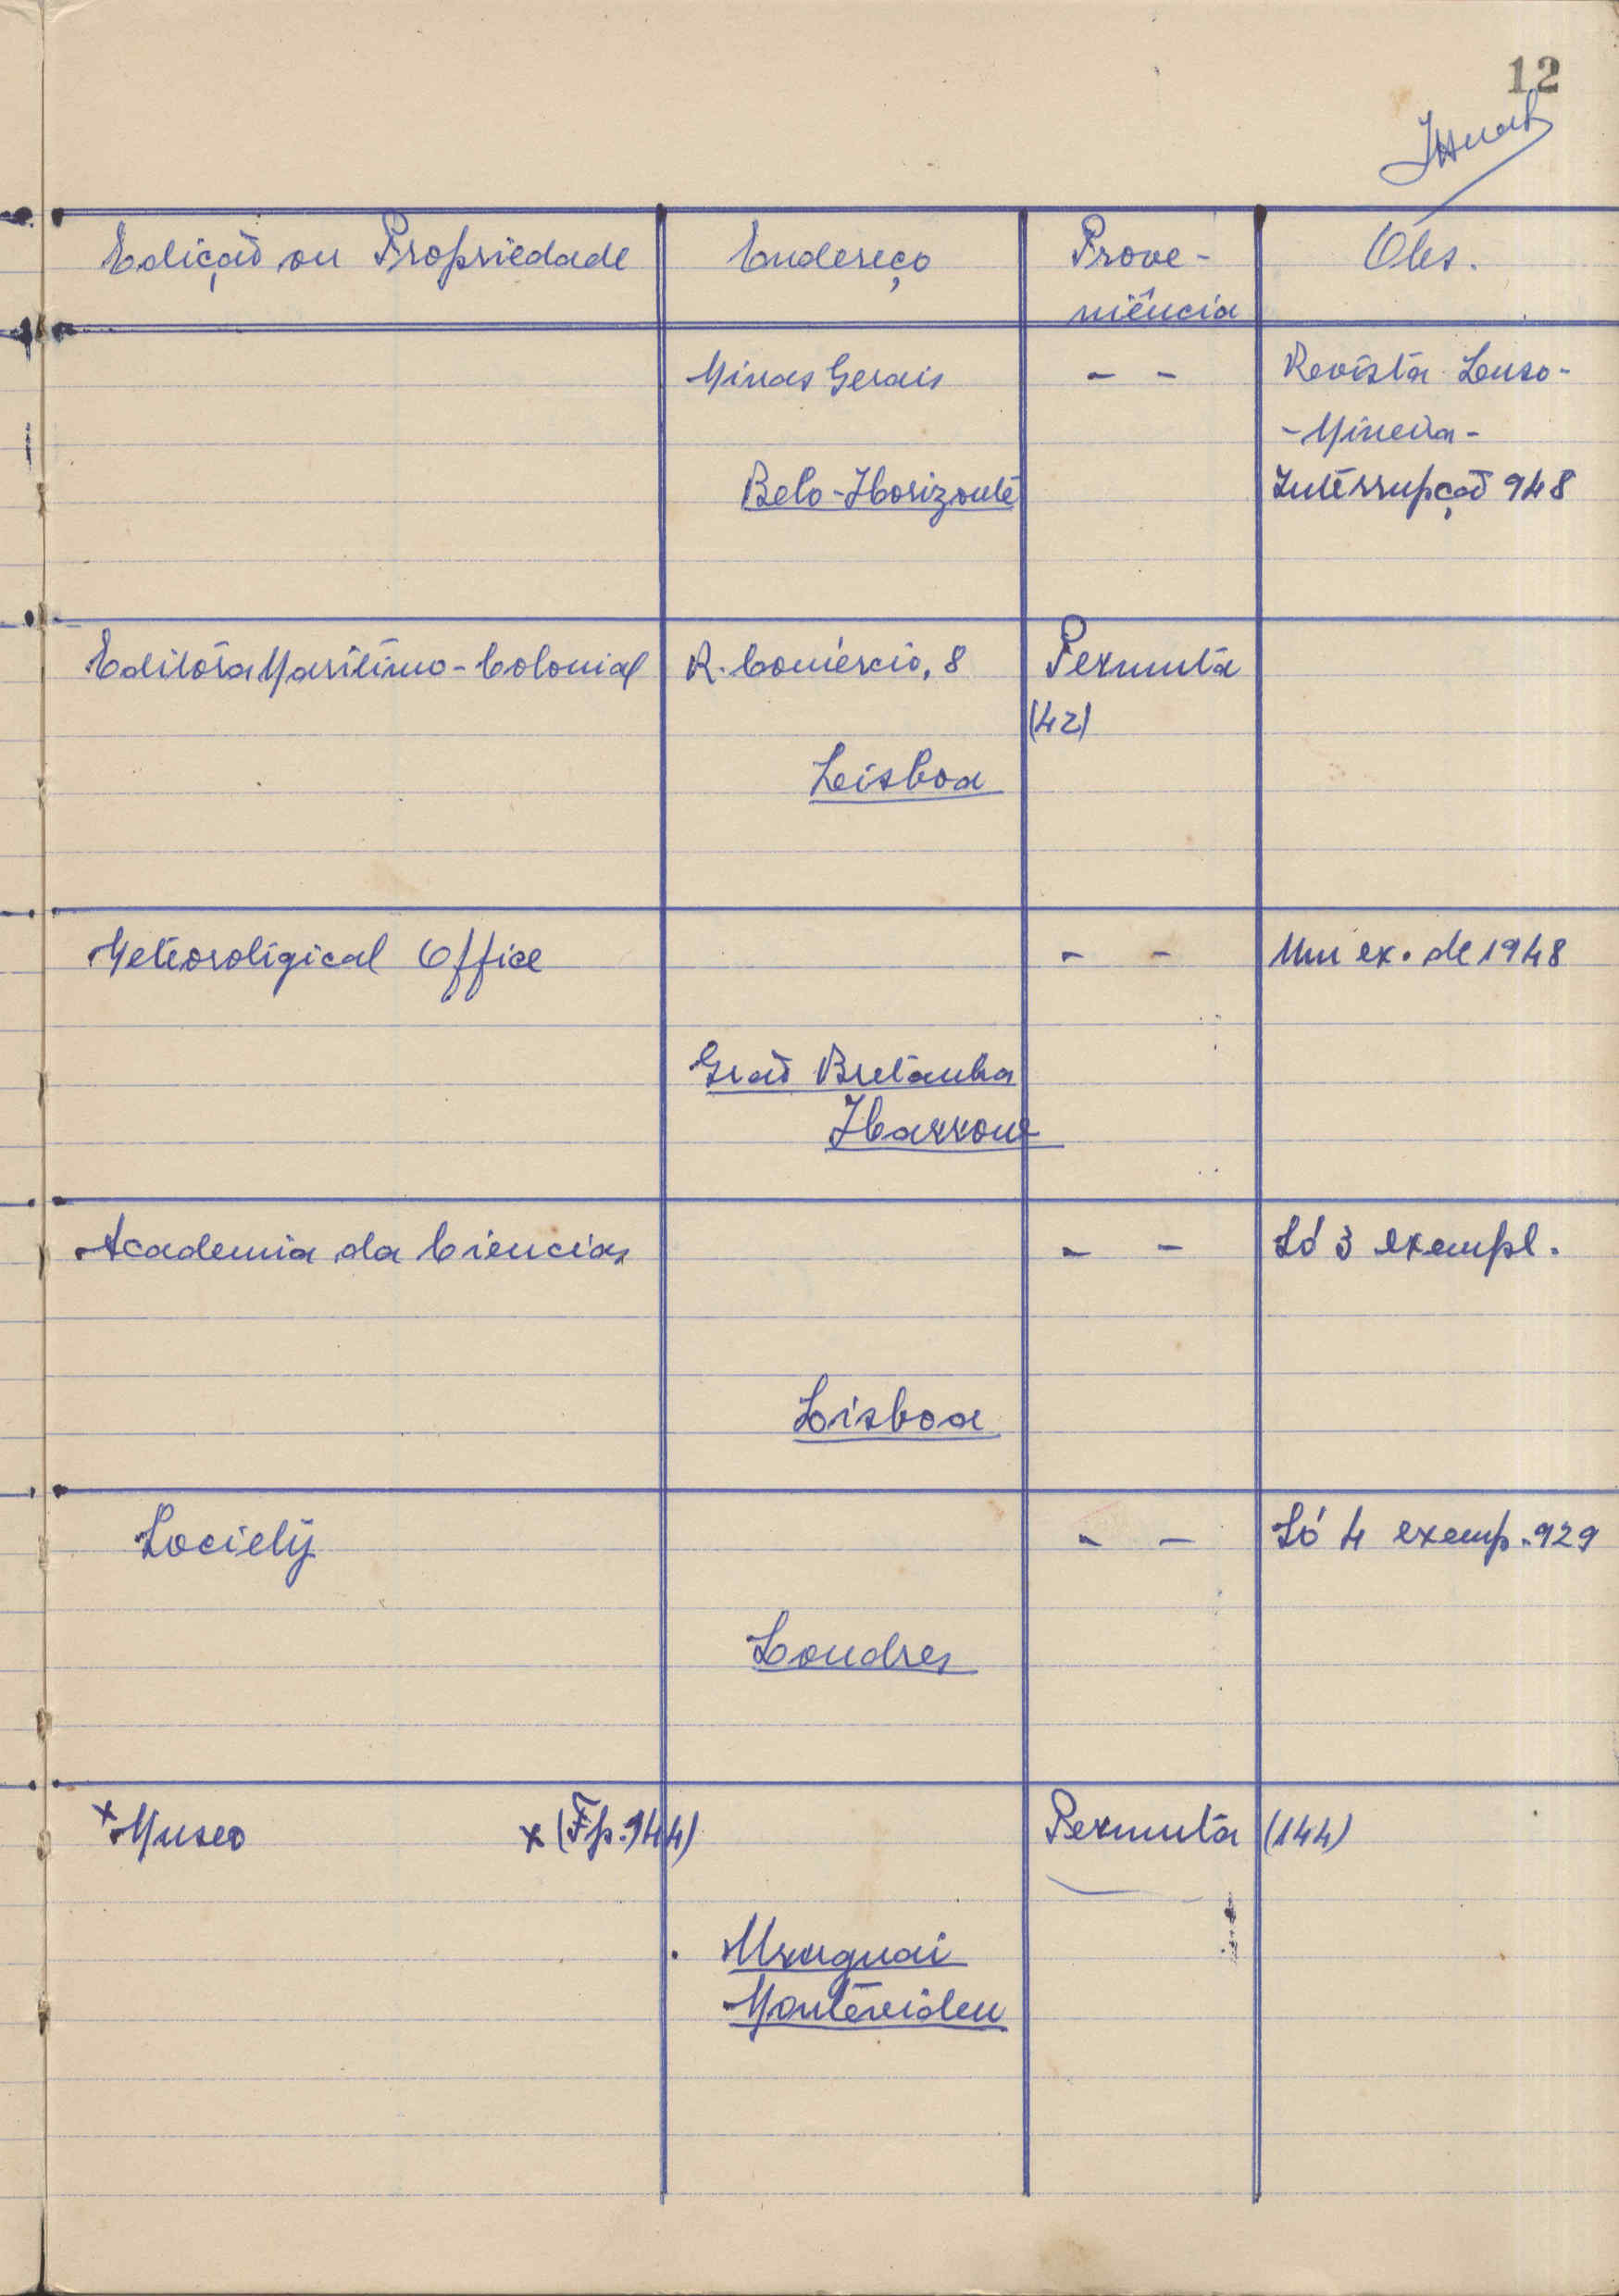 12
Edição ou Propriedade Endereço Prove- Obs.
niência
Minas Gerais - - Revista Luso-
-Mineira-
Belo-Horizonte Interrupção 948
Editora Maritimo-Colonial R. Comércio, 8 Permuta
(42)
Lisboa
Meteoroligical Office - - Um ex. de 1948
Grã Bretanha
Harrow
Academia da Ciencias - - Só 3 exempl.
Lisboa
Society - - Só 4 exemp. 929
Londres
x Museo x (Fp. 944) Permuta (144)
Uruguai
Montevideu